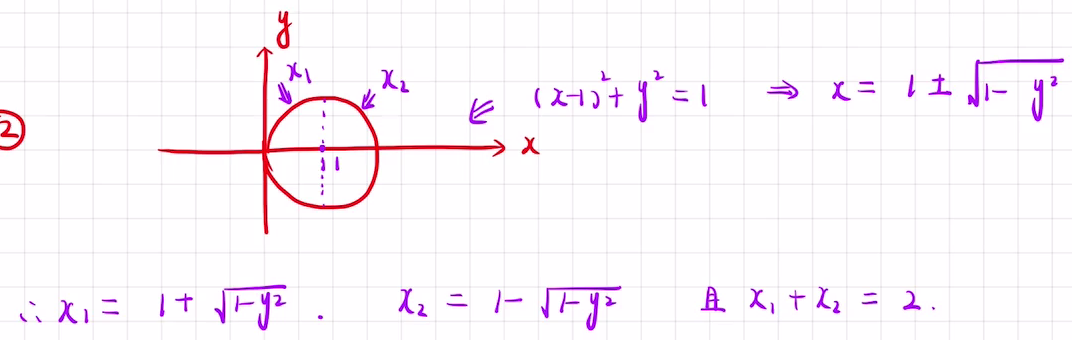 y
x₁ x₂ (x-1)²+y²=1 ⇒ x = 1±√(1-y²)
② x
1
∴ x₁ = 1+√(1-y²) . x₂ = 1-√(1-y²) 且 x₁+x₂ = 2.